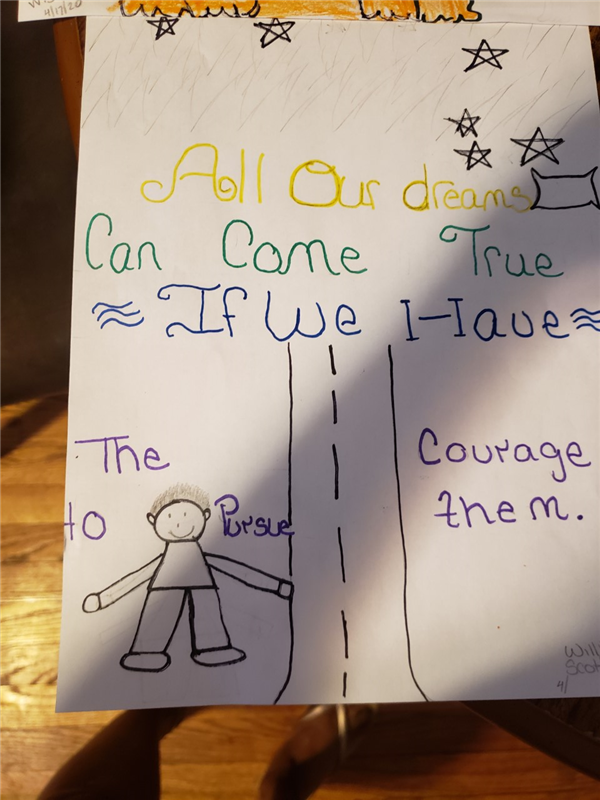 4/17/20
All Our dreams
Can Come True
If We Have
The Courage
to Pursue them.
Will
Scot
4/